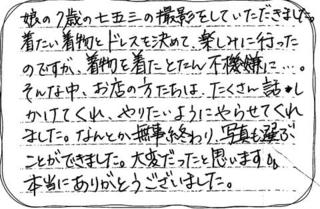 娘の7歳の七五三の撮影をしていただきました。
着たい着物とドレスを決めて、楽しみに行った
のですが、着物を着たとたん不機嫌に…。
そんな中、お店の方たちは、たくさん話し
かけてくれ、やりたいようにやらせてくれ
ました。なんとか無事終わり、写真も選ぶ
ことができました。大変だったと思います。
本当にありがとうございました。